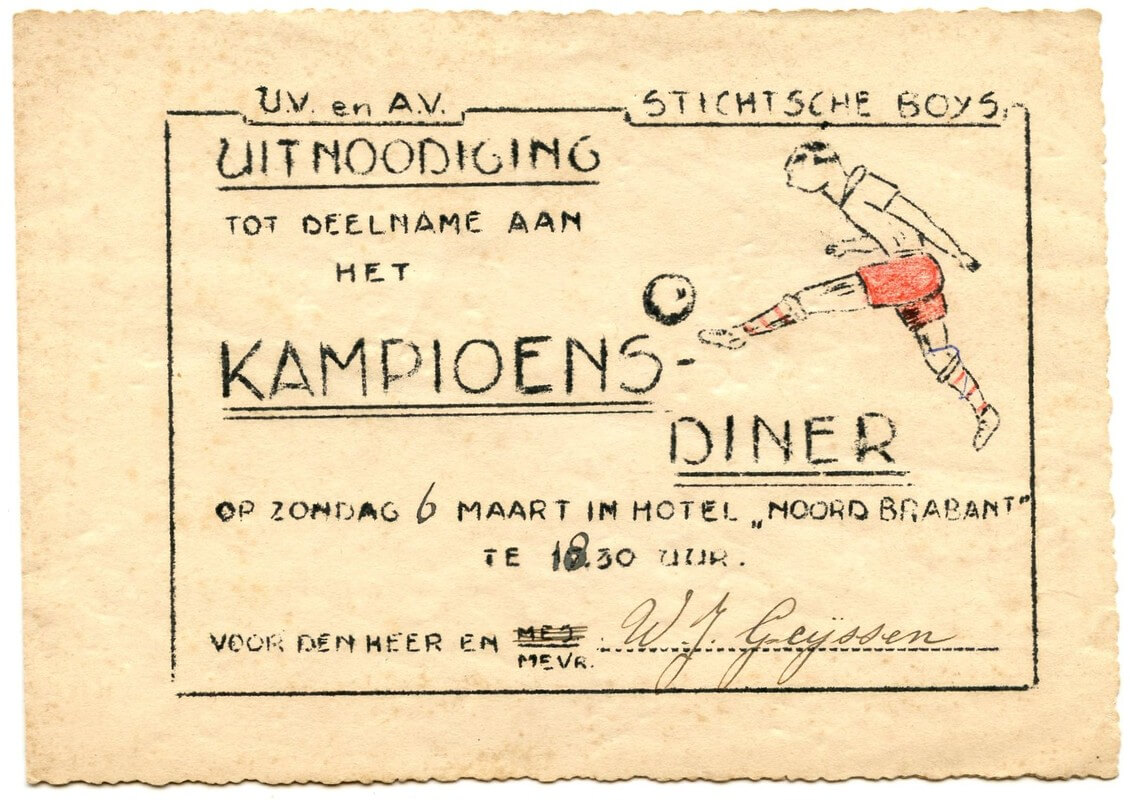 U.V. en A.V. STICHTSCHE BOYS
UITNOODIGING
TOT DEELNAME AAN
HET
KAMPIOENS-
DINER
OP ZONDAG 6 MAART IN HOTEL „NOORD BRABANT"
TE 18.30 UUR.
VOOR DEN HEER EN MEJ. W J. Geijssen
MEVR.